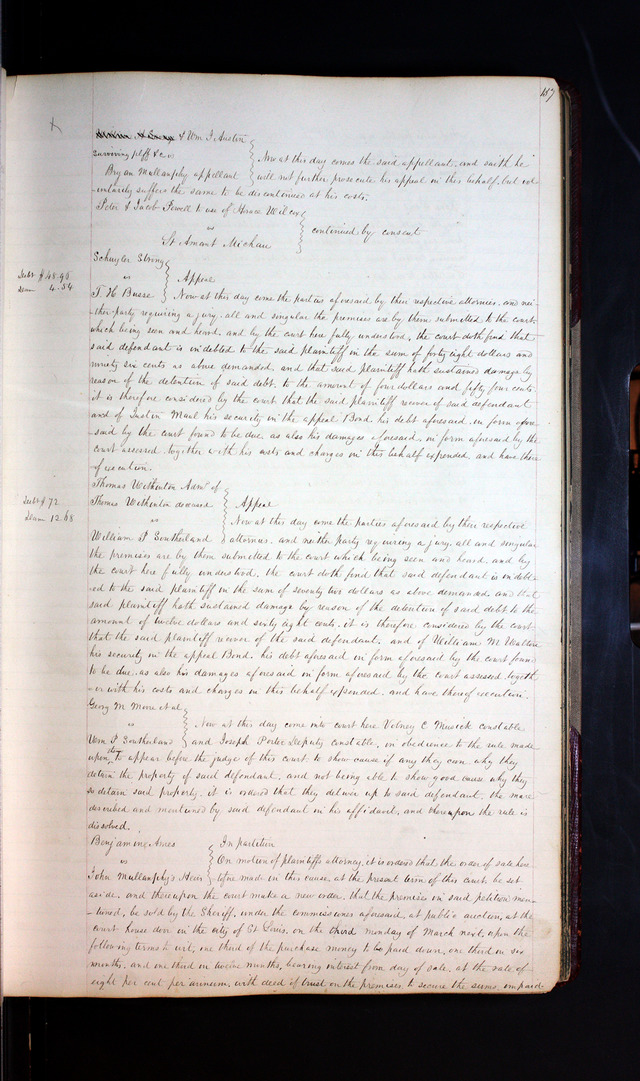 187
& Wm I. Austin
Surviving plff &c vs
Bryan Mullanphy appellant
Now at this day comes the said appellant, and saith he
will not further prosecute his appeal in this behalf, but vol-
untarily suffers the same to be discontinued at his costs.
Peter & Jacob Powell to use of Horace Wilcox
vs
St Amant Michau
continued by consent
Schuyler Strong
vs
T. H. Busse
Appeal
Debt $48.96
Dam 4.54
Now at this day come the parties aforesaid by their respective attornies, and nei-
ther party requiring a jury, all and singular the premises are by them submitted to the court,
which being seen and heard, and by the court here fully understood, the court doth find that
said defendant is indebted to the said plaintiff in the sum of forty eight dollars and
ninety six cents as above demanded, and that said plaintiff hath sustained damage by
reason of the detention of said debt, to the amount of four dollars and fifty four cents.
it is therefore considered by the court that the said plaintiff recover of said defendant
and of his security in the appeal Bond, his debt aforesaid, in form afore
-said by the court found to be due, as also his damages aforesaid, in form aforesaid by the
court assessed, together with his costs and charges in this behalf expended, and have there
of execution.
Thomas Withenton Admr of
Thomas Withenton deceased
vs
William St Southerland
Appeal
Debt $72
Dam 12.68
Now at this day come the parties aforesaid by their respective
attornies, and neither party requiring a jury, all and singular
the premises are by them submitted to the court which being seen and heard, and by
the court here fully understood, the court doth find that said defendant is indebt-
ed to the said plaintiff in the sum of seventy two dollars as above demanded and that
said plaintiff hath sustained damage by reason of the detention of said debt to the
amount of twelve dollars and sixty eight cents. it is therefore considered by the court
that the said plaintiff recover of the said defendant, and of William M
his security in the appeal Bond, his debt aforesaid in form aforesaid by the court found
to be due, as also his damages aforesaid in form aforesaid by the court assessed, togeth
-er with his costs and charges in this behalf expended, and have thereof execution.
Georg M. More et al
vs
Wm St Southerland
Now at this day come into court here Volney C Musick constable
and Joseph Porter Deputy constable, in obedience to the rule made
upon them to appear before the judge of this court to show cause if any they can why they
detain the property of said defendant, and not being able to show good cause why they
so detain said property, it is ordered that they deliver up to said defendant, the same
described and mentioned by said defendant in his affidavit, and thereupon the rule is
dissolved.
Benjaming Ames
vs
John Mullanphy's Heirs
In partition
On motion of plaintiffs attorney, it is ordered that the order of sale here
tofore made in this cause, at the present term of this court, be set
aside, and thereupon the court make a new order, that the premises in said petition men-
-tioned, be sold by the Sheriff, under the commissioners aforesaid, at public auction, at the
court house door in the city of St Louis, on the third monday of March next, upon the
following terms to wit, one third of the purchase money to be paid down, one third in six
months, and one third in twelve months, bearing interest from day of sale, at the rate of
eight per cent per annum, with deed of trust on the premises to secure the sums unpaid